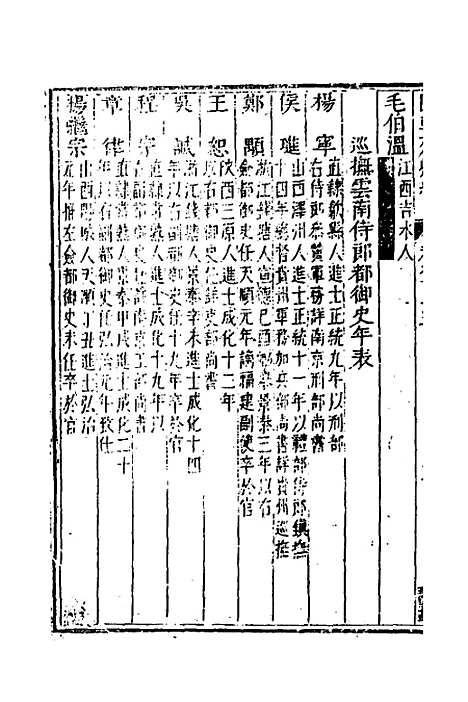 毛伯溫 江西吉水人
巡撫雲南侍郎都御史年表
楊寧 直隸歙縣人進士正統九年以刑部
右侍郎參贊軍務詳南京刑部尚書
侯璡 山西澤州人進士正統十一年以禮部侍郎鎮撫
十四年總督貴州軍務加兵部尚書詳貴州巡撫
鄭顒 浙江錢塘人宣德己酉鄉舉景泰三年以右
僉都御史任天順元年謫福建副使卒於官
王恕 陝西三原人進士成化十二年
以右都御史任詳吏部尚書
吳誠 浙江錢塘人景泰辛未進士成化十四
年以右副都御史任十九年卒於官
程宗 直隸常熟人進士成化十九年以
右副都御史任詳南京工部尚書
章律 直隸常熟人景泰甲戌進士成化二十
年以右副都御史任弘治元年致仕
楊繼宗 山西陽城人天順丁丑進士弘治
元年任左僉都御史未任卒於官